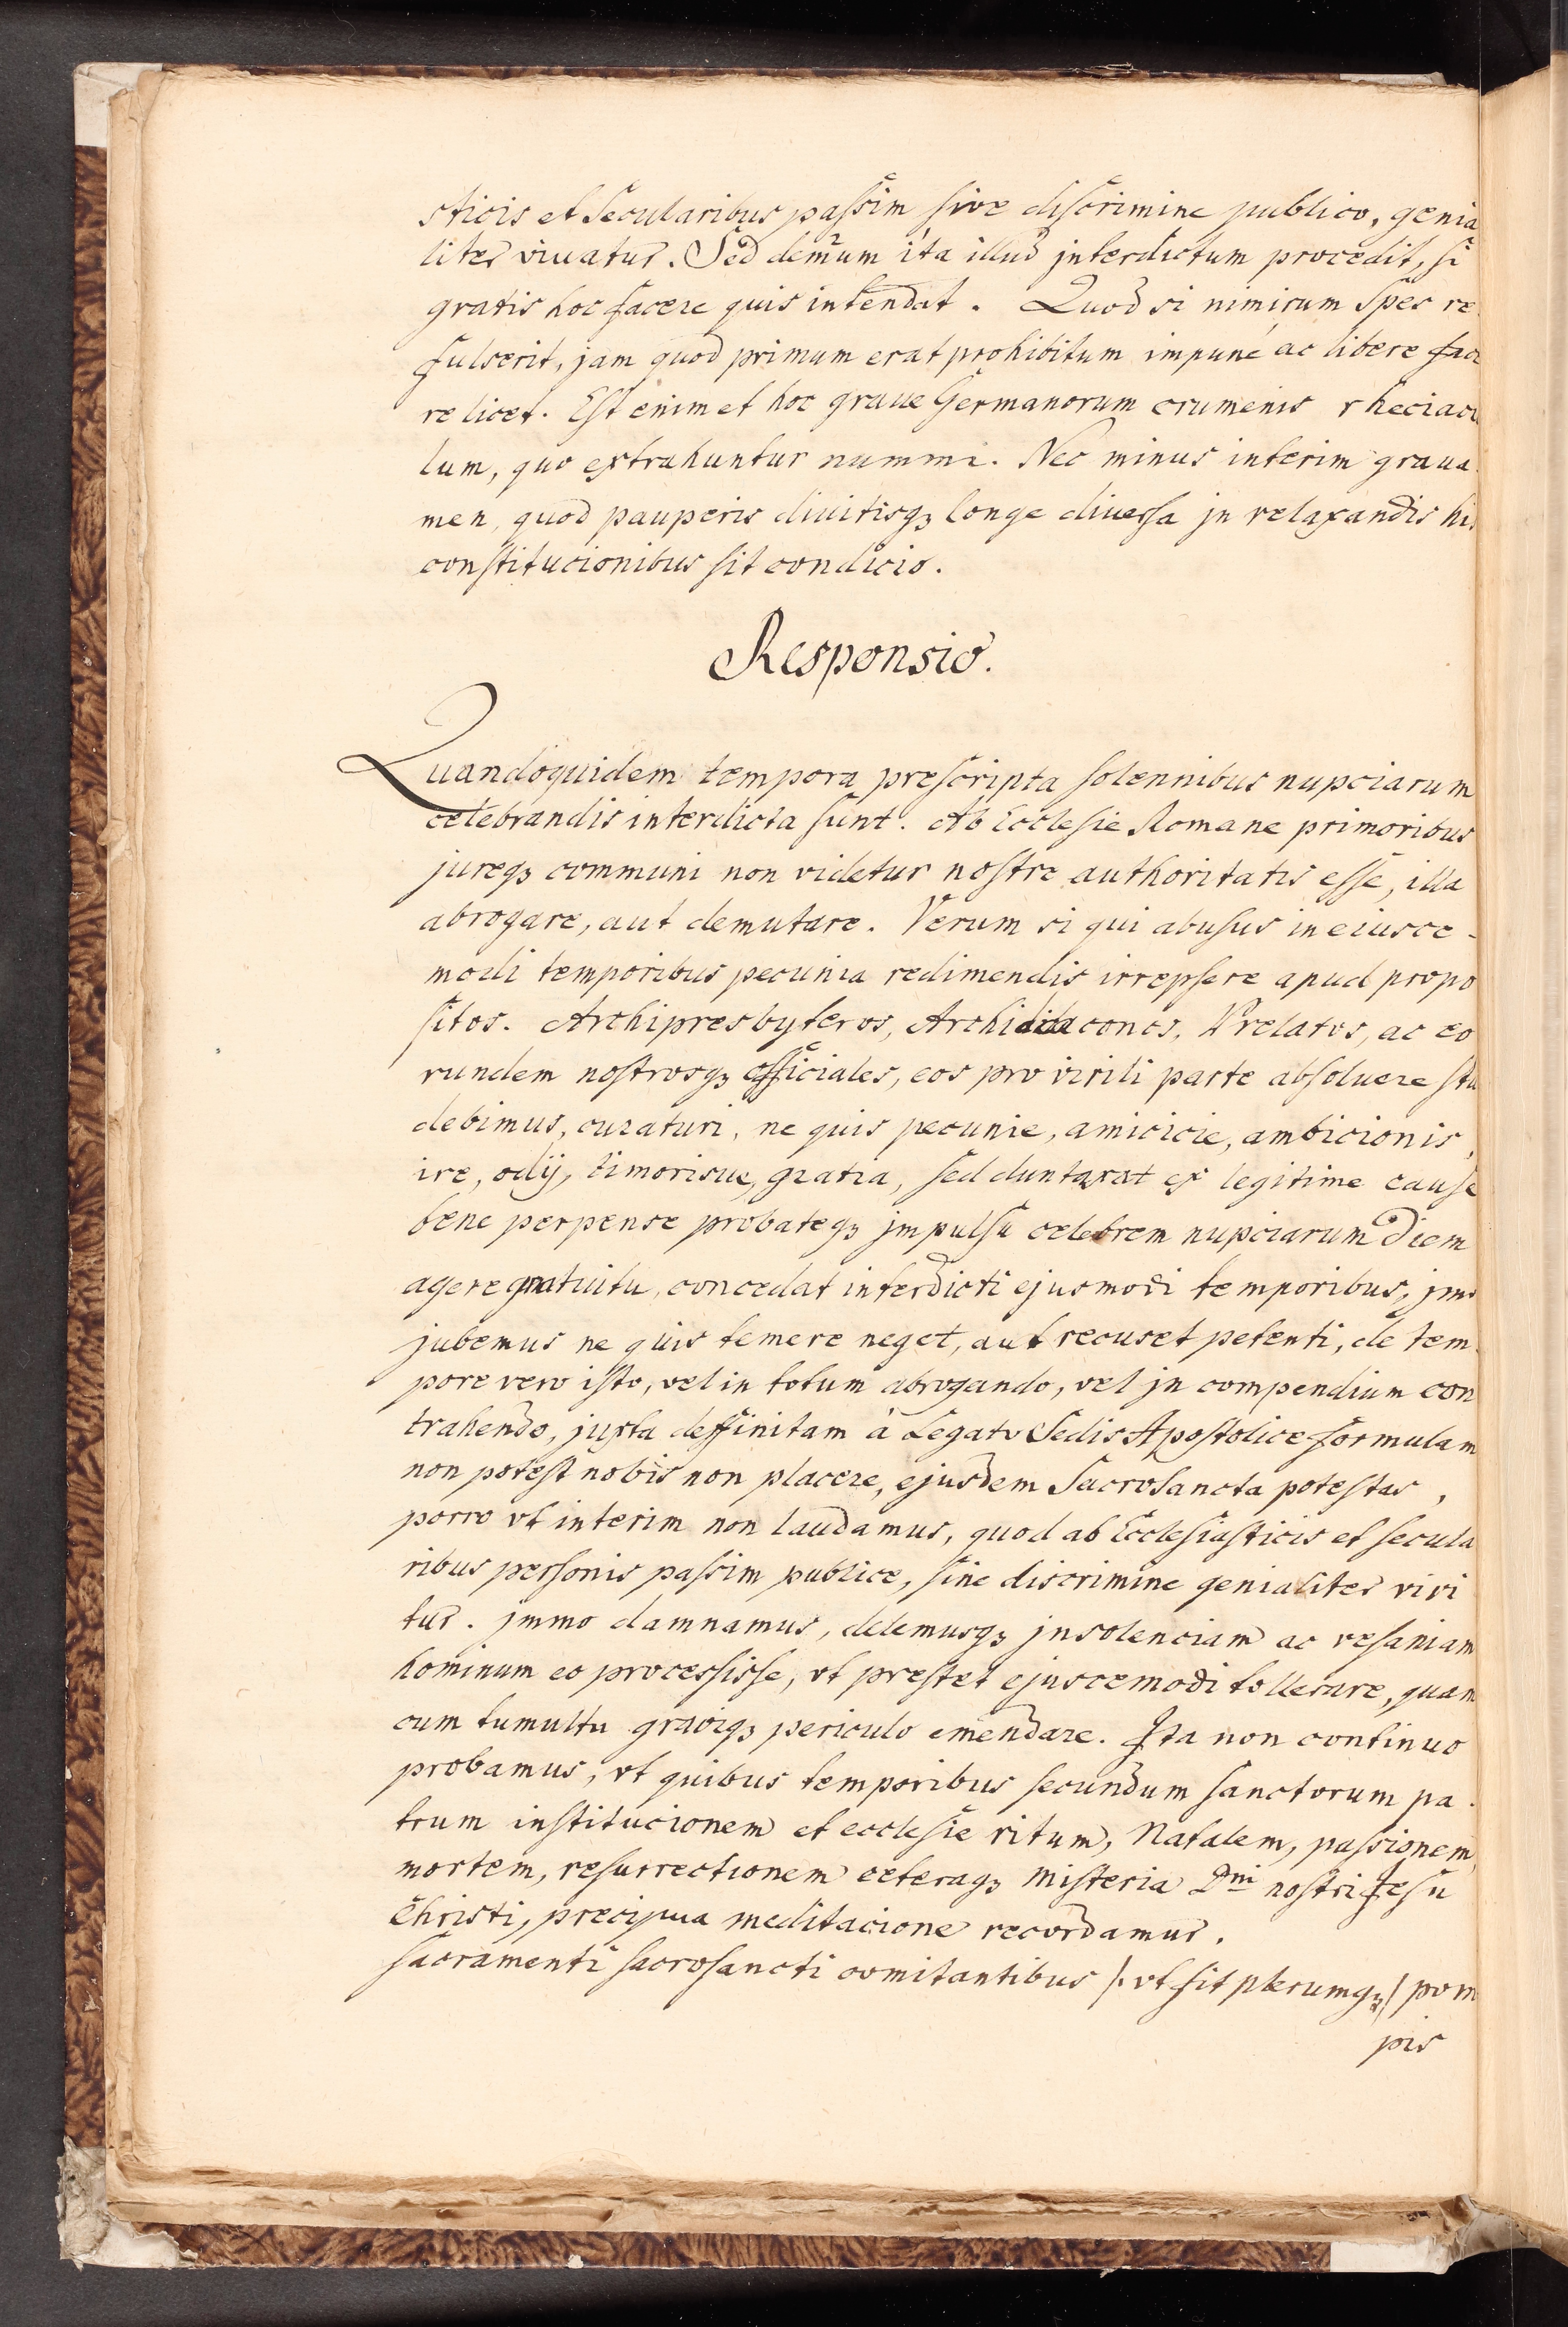 sticis et Secularibus passim sive discrimine publico, genia
liter vivatur. Sed demum ita illud jnterdictum procedit, si
gratis hoc facere quis intendat. Quod si nimirum Spes re
fulserit, jam quod primum erat prohibitum impune ac libere face
re licet. Est enim et hoc graue Germanorum crumenis rheciacu
lum, quo extrahuntur nummi. Nec minus interim graua
men, quod pauperis diuitisq3 longe diuersa jn relaxandis his
constitucionibus sit condicio.
Responsio.
Quandoquidem tempora prescripta solennibus nupciarum
celebrandis interdicta sunt. Ab Ecclesie Romane primoribus
jureq3 communi non videtur nostre authoritatis esse, illa
abrogare, aut demutare. Verum si qui abusus in eiusce-
modi temporibus pecunia redimendis irrepsere apud propo
sitos. Archipresbyteros, Archidiaconos, Prelatos, ac eo
rundem nostrosq3 officiales, eos pro virili parte absoluere stu
debimus, curaturi, ne quis pecunie, amicicie, ambicionis,
ire, odij, timorisue, gratia, sed duntaxat ex legitime cause
bene perpense probateq3 jmpulsu celebrem nupciarum diem
agere gratuitu, concedat interdicti ejusmodi temporibus, jmo
jubemus ne quis temere neget, aut recuset petenti, de tem
pore vero isto, vel in totum abrogando, vel jn compendium con
trahendo, juxta deffinitam à Legato Sedis Apostolice formulam
non potest nobis non placere, ejusdem Sacrosancta potestas,
porro vt interim non laudamus, quod ab Ecclesiasticis et secula
ribus personis passim publice, sine discrimine genialiter vivi
tur. jmmo damnamus, delemusq3 jnsolenciam ac vesaniam
hominum eo processisse, vt prestet ejuscemodi tollerare, quam
cum tumultu graviq3 periculo emendare. Ita non continuo
probamus, vt quibus temporibus secundum sanctorum pa.
trum institucionem et ecclesie ritum, Natalem, passionem,
mortem, resurrectionem ceteraq3 misteria Dni nostri Jesu
Christi, precipua meditacione recordamur.
sacramenti sacrosancti comitantibus /: vt fit plerumq3 / pom
pis